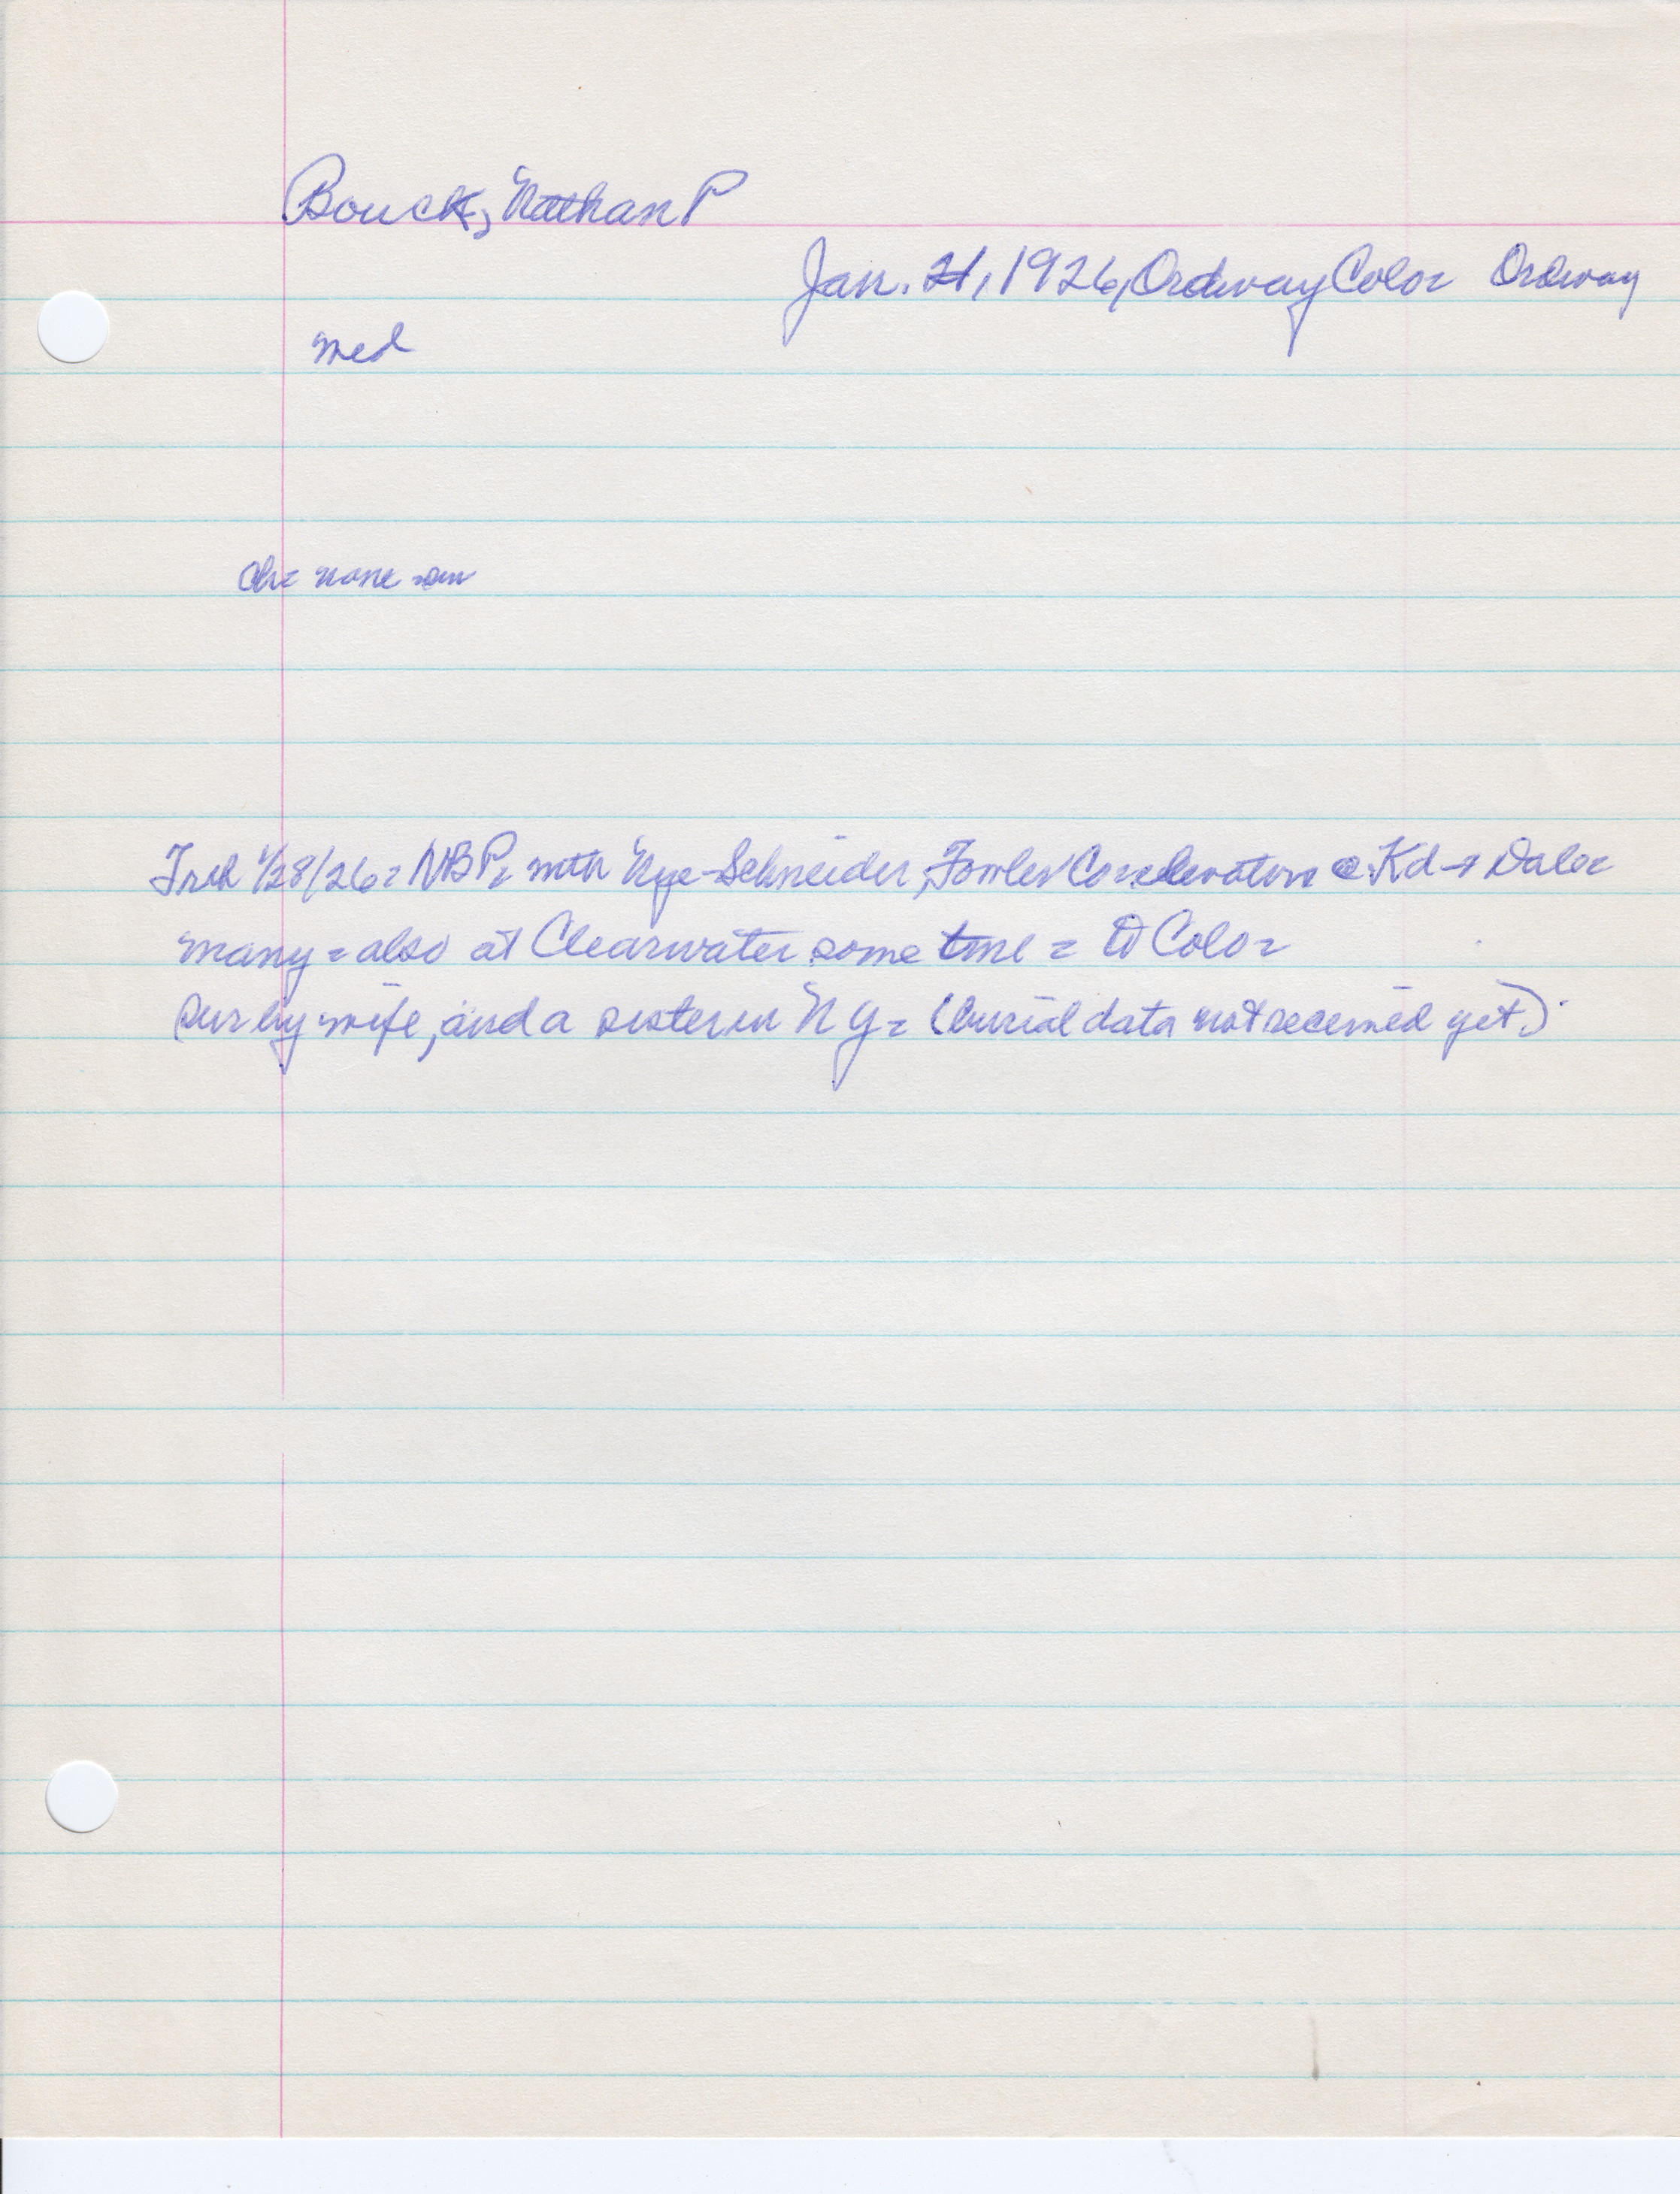 Bouck, Nathan P
Jan. 21, 1926, Ordway Colo= Ordway
med
Ch= none
1/28/26= NBP= with Nye-Schneider, Fowler Co elevators @ Kd
many= also at Clearwater some time = to Colo=
Sur by wife, and a sister in N Y= (burial data not received yet.)